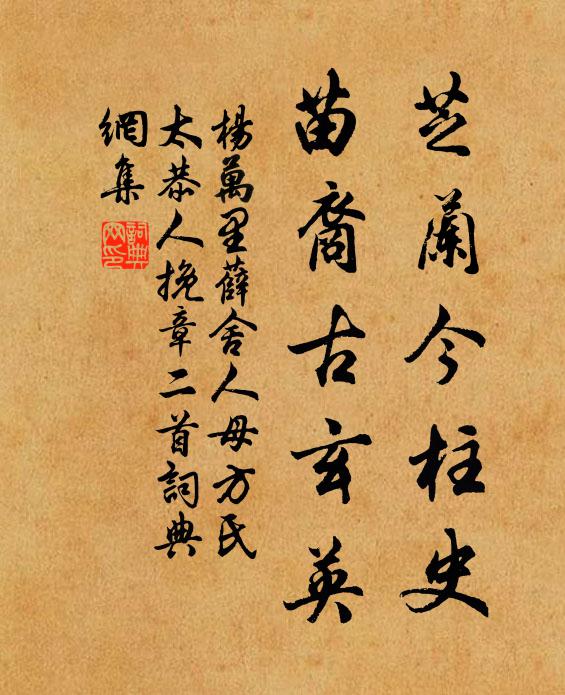 芝蘭今柱史
苗裔古玄英
楊萬里薛舍人母方氏
太恭人挽章二首詞典
網集
詞典
网印